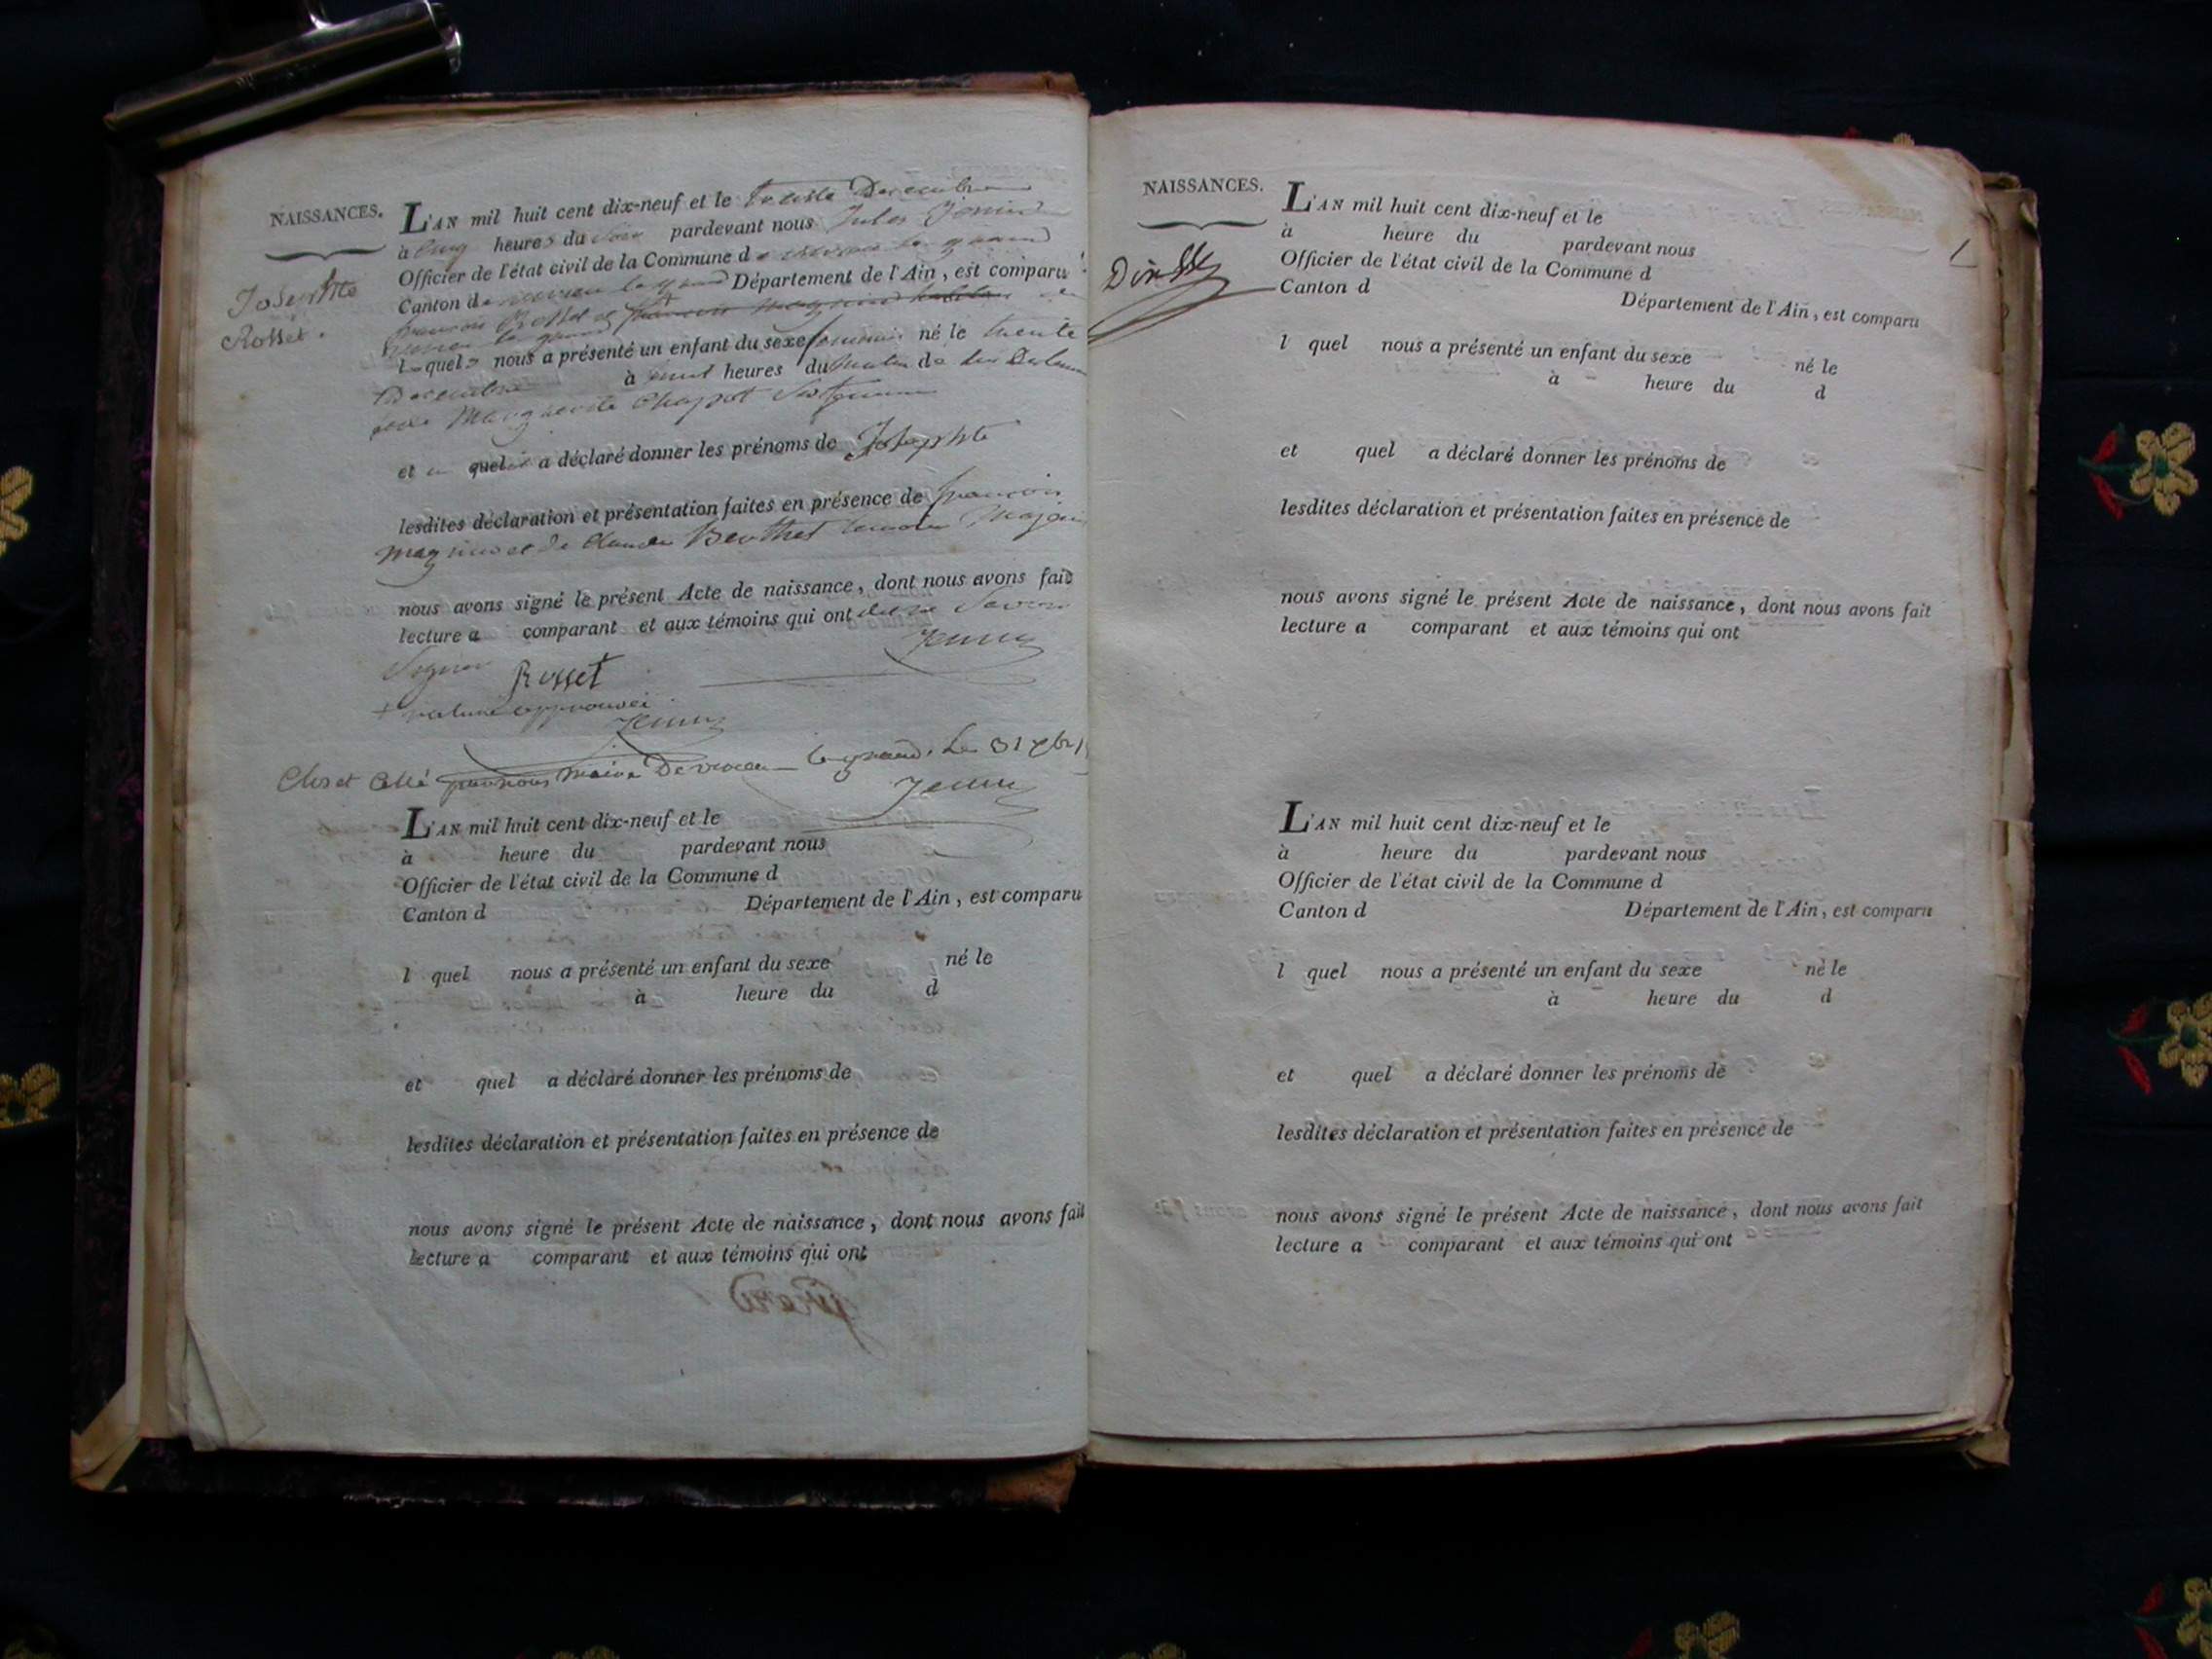 NAISSANCES.
Josephte
Rosset.
L'AN mil huit cent dix-neuf et le trente Decembre
à Cinq heures du Soir pardevant nous Jules
Officier de l'état civil de la Commune de le grand
Canton de le grand Département de l'Ain, est comparu
francois Rosset et
le grand
l quel nous a présenté un enfant du sexe feminin né le trente
Decembre à huit heures du matin de
Marguerite Chapot
et quel a déclaré donner les prénoms de Josephte
lesdites déclaration et présentation faites en présence de francois
et de Claude Berthet Majeurs
nous avons signé le présent Acte de naissance, dont nous avons fait
lecture a comparant et aux témoins qui ont dit ne Savoir
Signer Rosset
+ rature approuvée
Clos et par nous Maire le grand. Le 31
L'AN mil huit cent dix-neuf et le
à heure du pardevant nous
Officier de l'état civil de la Commune d
Canton d Département de l'Ain, est comparu
l quel nous a présenté un enfant du sexe né le
à heure du d
et quel a déclaré donner les prénoms de
lesdites déclaration et présentation faites en présence de
nous avons signé le présent Acte de naissance, dont nous avons fait
lecture a comparant et aux témoins qui ont
NAISSANCES.
L'AN mil huit cent dix-neuf et le
à heure du pardevant nous
Officier de l'état civil de la Commune d
Canton d Département de l'Ain, est comparu
l quel nous a présenté un enfant du sexe né le
à heure du d
et quel a déclaré donner les prénoms de
lesdites déclaration et présentation faites en présence de
nous avons signé le présent Acte de naissance, dont nous avons fait
lecture a comparant et aux témoins qui ont
L'AN mil huit cent dix-neuf et le
à heure du pardevant nous
Officier de l'état civil de la Commune d
Canton d Département de l'Ain, est comparu
l quel nous a présenté un enfant du sexe né le
à heure du d
et quel a déclaré donner les prénoms de
lesdites déclaration et présentation faites en présence de
nous avons signé le présent Acte de naissance, dont nous avons fait
lecture a comparant et aux témoins qui ont